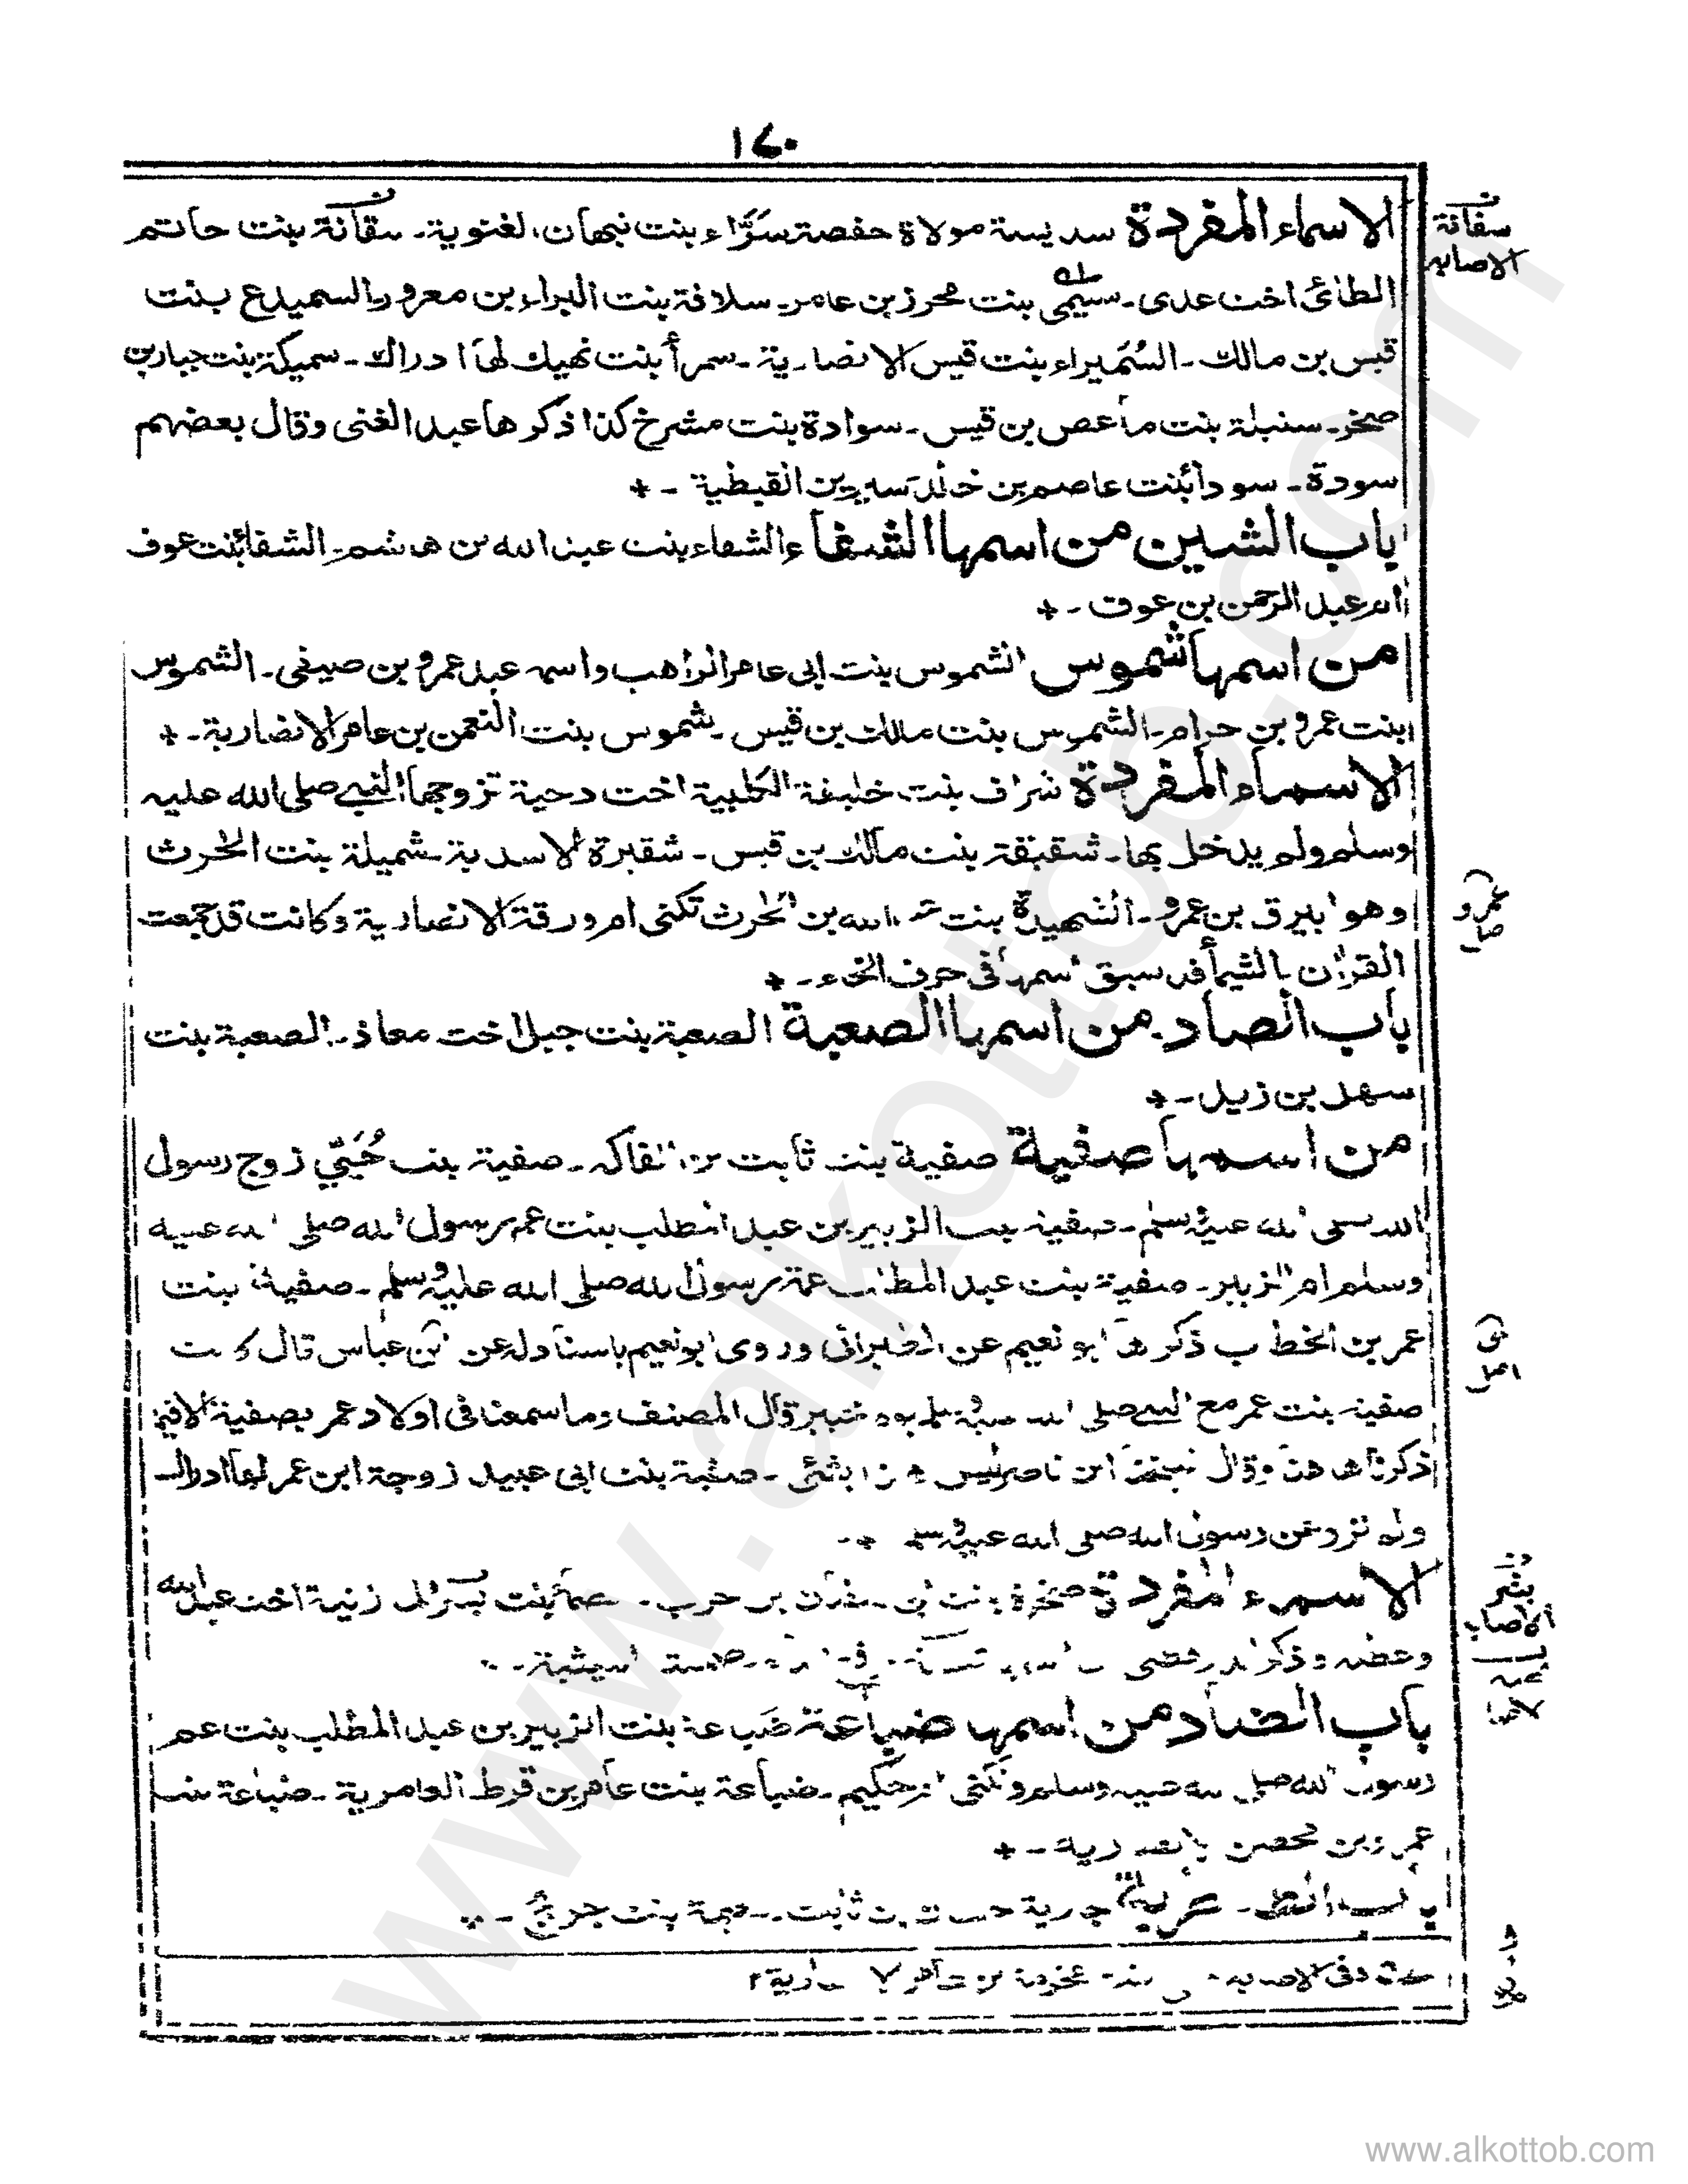 ١٧٠
الاسماء المفردة سديسة مولاة حفصة سَرَّاء بنت نبهان الغنوية ـ سفانة بنت حاتم
سفانة
الاصابه
الطائى اخت عدى ـ سيمى بنت محرز بن عامر ـ سلافة بنت البراء بن معرور ـ السميدع بنت
قيس بن مالك ـ السُمَيراء بنت قيس الانصارية ـ سمرأ بنت نهيك لها ادراك ـ سميكة بنت جبار بن
صخر ـ سنبلة بنت ماعص بن قيس ـ سوادة بنت مشرخ كذا ذكرها عبد الغنى وقال بعضهم
سودة ـ سودأ بنت عاصم بن خالد سيرين القبطية ـ +
باب الشين من اسمها الشفاء الشفاء بنت عبد الله بن هاشم ـ الشفا بنت عوف
ام عبد الرحمن بن عوف ـ +
من اسمها شموس الشموس بنت ابى عامر الراهب واسمه عبد عمرو بن صيفى ـ الشموس
بنت عمرو بن حرام ـ الشموس بنت مالك بن قيس ـ شموس بنت النعمن بن عامر الانصارية ـ +
الاسماء المفردة شراف بنت خليفة الكلبية اخت دحية تزوجها النبى صلى الله عليه
وسلم ولم يدخل بها ـ شقيقة بنت مالك بن قيس ـ شقيرة الاسدية ـ شميلة بنت الحرث
وهو ابيرق بن عمرو ـ الشهيدة بنت الله بن الحرث تكنى ام ورقة الانصارية وكانت قد جمعت
عمرو
القران ـ الشيمأ قد سبق اسمها فى حرف الخاء ـ +
باب الصاد ـ من اسمها الصعبة الصعبة بنت جبل اخت معاذ ـ الصعبة بنت
سهل بن زيد ـ +
من اسمها صفية صفية بنت ثابت بن الفاكه ـ صفية بنت حُيَيّ زوج رسول
الله صلى الله عليه وسلم ـ صفية بنت الزبير بن عبد المطلب بنت عم رسول الله صلى الله عليه
وسلم ام الزبير ـ صفية بنت عبد المطلب عمة رسول الله صلى الله عليه وسلم ـ صفية بنت
عمر بن الخطاب ذكرها ابو نعيم عن الطبرانى وروى ابو نعيم باسناد له عن ابن عباس قال كانت
صفية بنت عمر مع النبى صلى الله عليه وسلم يوم خيبر قال المصنف وما سمعنا فى اولاد عمر بصفية الا فيما
اصل
ذكرنا هاهنا وقال شيخنا ابن ناصر ليس هذا بشئ ـ صفية بنت ابى عبيد زوجة ابن عمر لها ادراك
ولم ترو عن رسول الله صلى الله عليه وسلم ـ +
الاسماء المفردة صخرة بنت ابى سفيان بن حرب ـ صمأ بنت بسر زنية اخت عبد الله
بشر
الاصابه
وعطيه وذكر الليثية ـ +
باب الضاد من اسمها ضباعة ضباعة بنت الزبير بن عبد المطلب بنت عم
رسول الله صلى الله عليه وسلم وتكنى ام حكيم ـ ضباعة بنت عامر بن قرط العامرية ـ ضباعة بنت
عمرو بن محصن الانصارية ـ +
باب جارية حسان بن ثابت ـ بنت جريج ـ +
فى الاصابه بنت بن عامر ٧ مارية ٢
www.alkottob.com